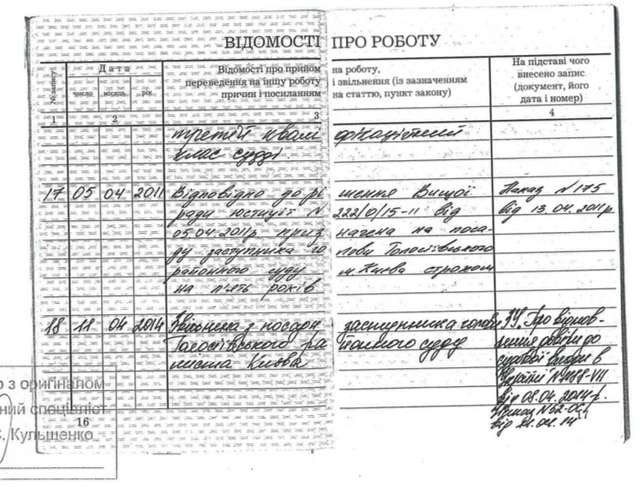 ВІДОМОСТІ ПРО РОБОТУ
№ запису
Дата
число місяць рік
Відомості про прийом на роботу,
переведення на іншу роботу і звільнення (із зазначенням
причин і посиланням на статтю, пункт закону)
На підставі чого
внесено запис
(документ, його
дата і номер)
1 2 3 4
третій кваліфікаційний
клас судді.
17 05 04 2011 Відповідно до рішення Вищої Наказ №175
ради юстиції № 222/0/15-11 від від 13.04.2011р.
05.04.2011р. призначена на поса-
ду заступника голови Голосіївського
районного суду м. Києва строком
на п'ять років
18 11 04 2014 Звільнена з посади заступника голови ЗУ "Про віднов-
Голосіївського районного суду лення довіри до
міста Києва судової влади в
Україні" №1188-VII
від 08.04.2014р.
Наказ №62-ОС
від 14
16
з оригіналом
спеціаліст
Кульшенко